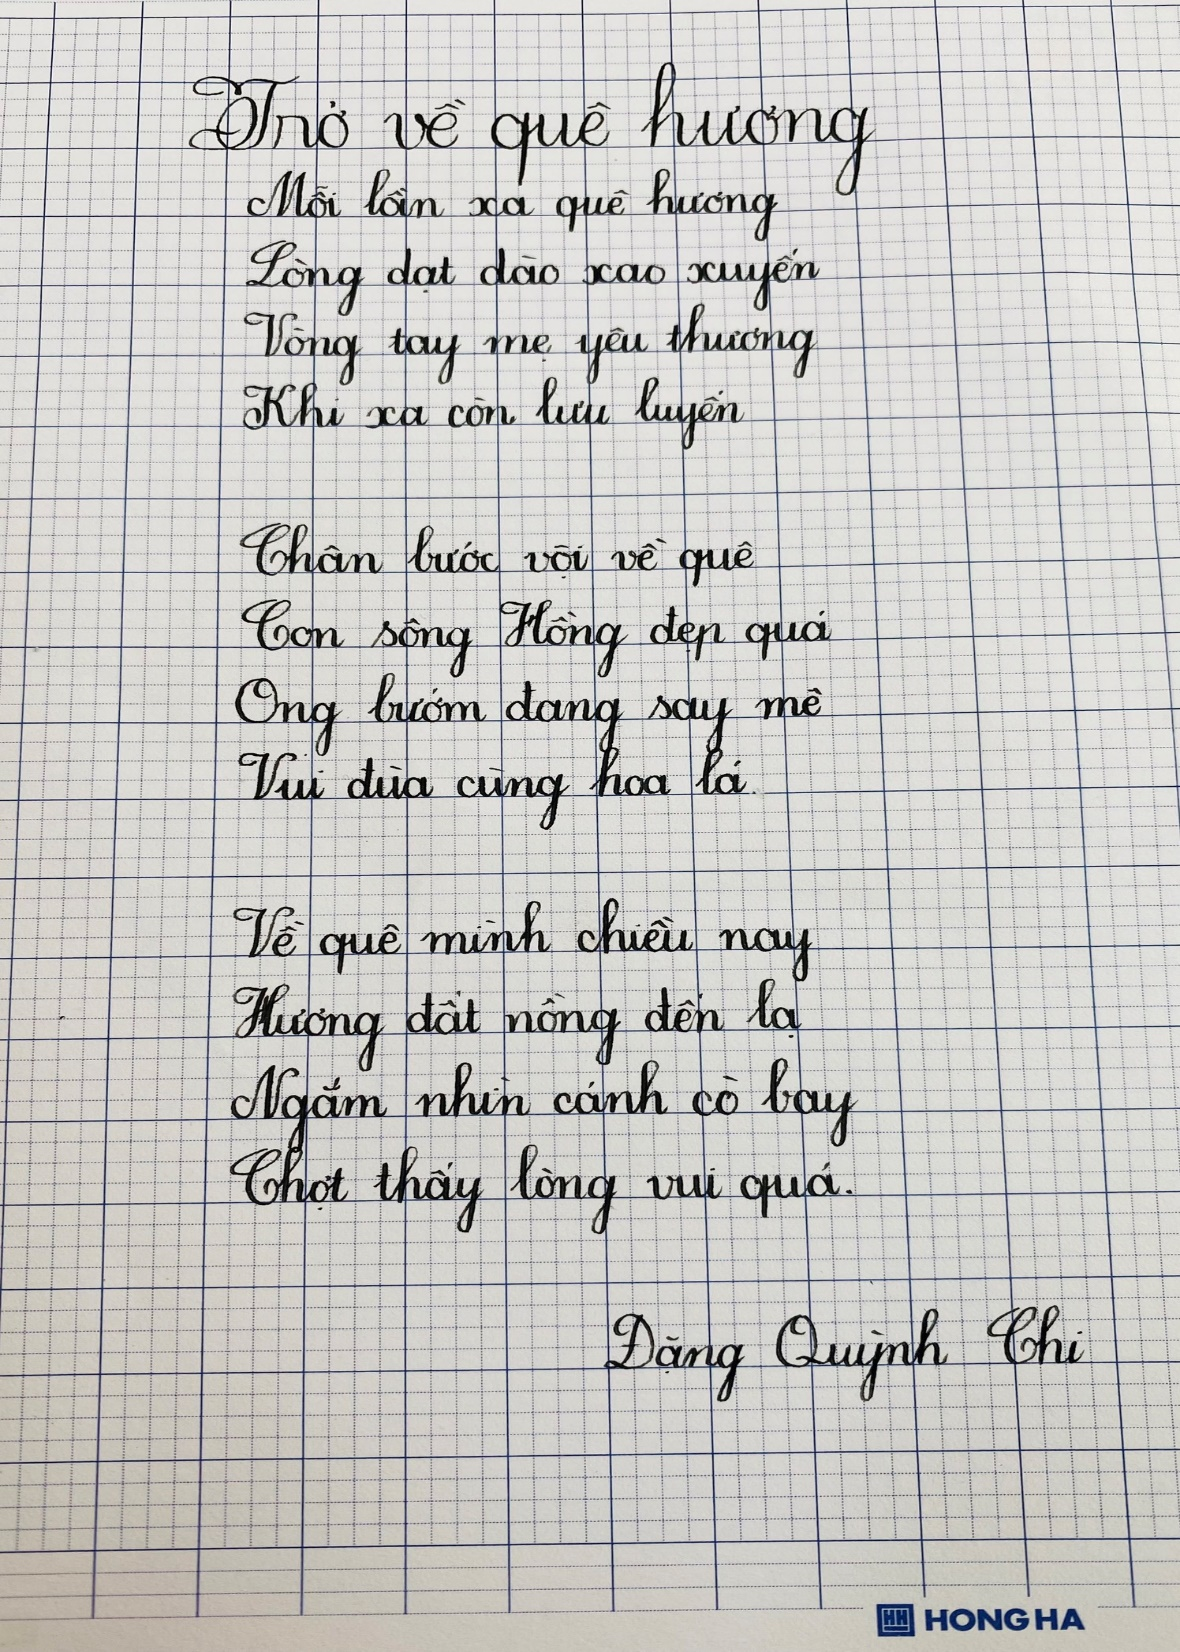 Trở về quê hương
Mỗi lần xa quê hương
Lòng dạt dào xao xuyến
Vòng tay mẹ yêu thương
Khi xa còn lưu luyến
Chân bước vội về quê
Con sông Hồng đẹp quá
Ong bướm đang say mê
Vui đùa cùng hoa lá.
Về quê mình chiều nay
Hương đất nồng đến lạ
Ngắm nhìn cánh cò bay
Chợt thấy lòng vui quá.
Đặng Quỳnh Chi
HONG HA